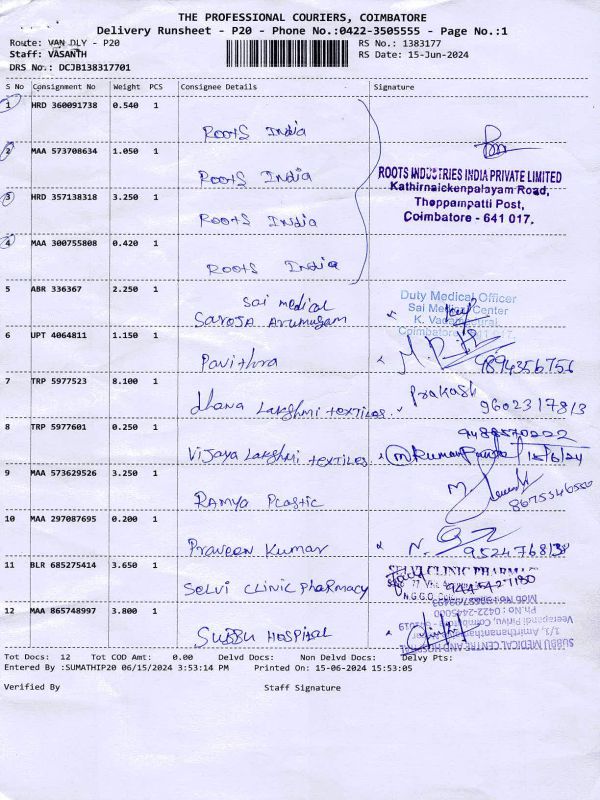 THE PROFESSIONAL COURIERS, COIMBATORE
Delivery Runsheet - P20 - Phone No.:0422-3505555 - Page No.:1
Route: VAN DLY - P20
RS No.: 1383177
Staff: VASANTH
RS Date: 15-Jun-2024
DRS No.: DCJB138317701
S No Consignment No Weight PCS Consignee Details Signature
1 HRD 360091738 0.540 1
Roots India
2 MAA 573708634 1.050 1
Roots India
ROOTS INDUSTRIES INDIA PRIVATE LIMITED
Kathirnaickenpalayam Road,
Thoppampatti Post,
Coimbatore - 641 017.
3 HRD 357138318 3.250 1
Roots India
4 MAA 300755808 0.420 1
Roots India
5 ABR 336367 2.250 1
Sai medical
Saroja Arumugam
Duty Medical Officer
Sai Medical Center
K. Vadamadurai
Coimbatore - 641 017
6 UPT 4064811 1.150 1
Pavithra
9894356756
7 TRP 5977523 8.100 1
dhana Lakshmi textiles
Prakash
9602317813
8 TRP 5977601 0.250 1
Vijaya Lakshmi textiles
9488570222
15/6/24
9 MAA 573629526 3.250 1
Ramya Plastic
8675546550
10 MAA 297087695 0.200 1
Praveen Kumar
11 BLR 685275414 3.650 1
Selvi Clinic Pharmacy
SELVI CLINIC PHARMACY
12 MAA 865748997 3.800 1
Subbu Hospital
SUBBU MEDICAL CENTRE AND HOSPITAL
Ph.No : 0422-2445000
Tot Docs: 12 Tot COD Amt: 0.00 Delvd Docs: Non Delvd Docs: Delvy Pts:
Entered By :SUMATHIP20 06/15/2024 3:53:14 PM Printed On: 15-06-2024 15:53:05
Verified By Staff Signature